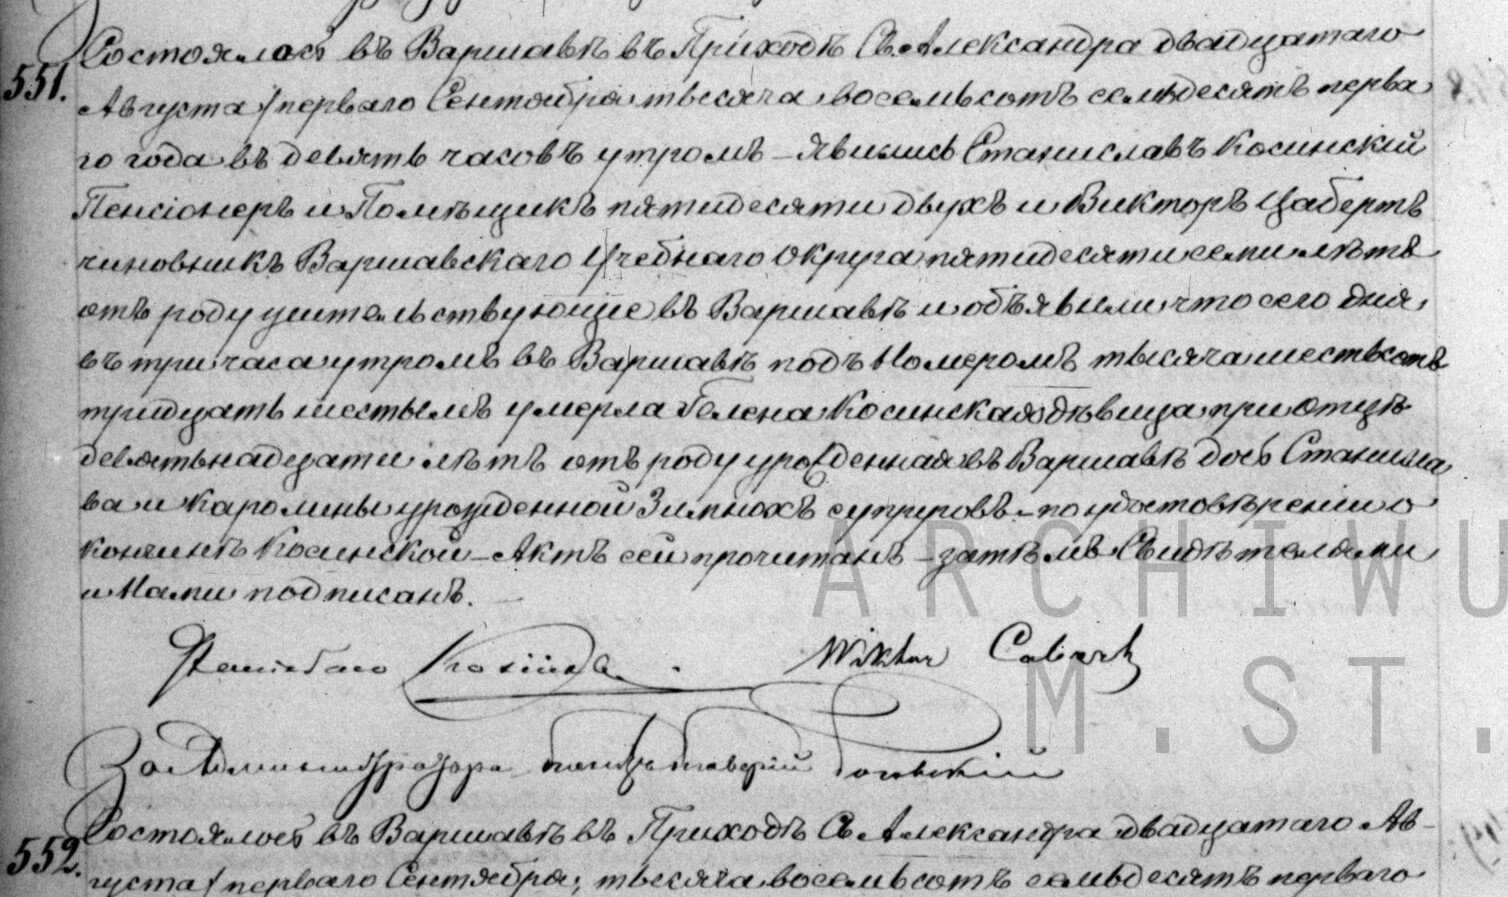 551.
Состоялось въ Варшавѣ въ Приходѣ Св. Александра двадцатаго
Августа / перваго Сентября тысяча восемьсотъ семьдесятъ перва
го года въ девять часовъ утромъ – явились Станиславъ Косинскій
Пенсіонеръ и Помѣщикъ пятидесяти двухъ и Викторъ Цабертъ
чиновникъ Варшавскаго Учебнаго Округа пятидесяти семи лѣтъ
отъ роду жительствующіе въ Варшавѣ и объявили что сего дня
въ три часа утромъ въ Варшавѣ подъ Номеромъ тысяча шестьсотъ
тридцать шестымъ умерла Гелена Косинская дѣвица при отцѣ
девятьнадцати лѣтъ отъ роду урожденная въ Варшавѣ дочь Станисла
ва и Каролины урожденной Зимнохъ супруговъ – по удостовѣреніи о
кончинѣ Косинской – Актъ сей прочитанъ – затѣмъ Свидѣтелями
и Нами подписанъ. –
Stanisław Kosiński. Wiktor Cabert
За Администратора
552.
Состоялось въ Варшавѣ въ Приходѣ Св. Александра двадцатаго Ав-
густа / перваго Сентября, тысяча восемьсотъ семьдесятъ перваго
ARCHIWU
M.ST.